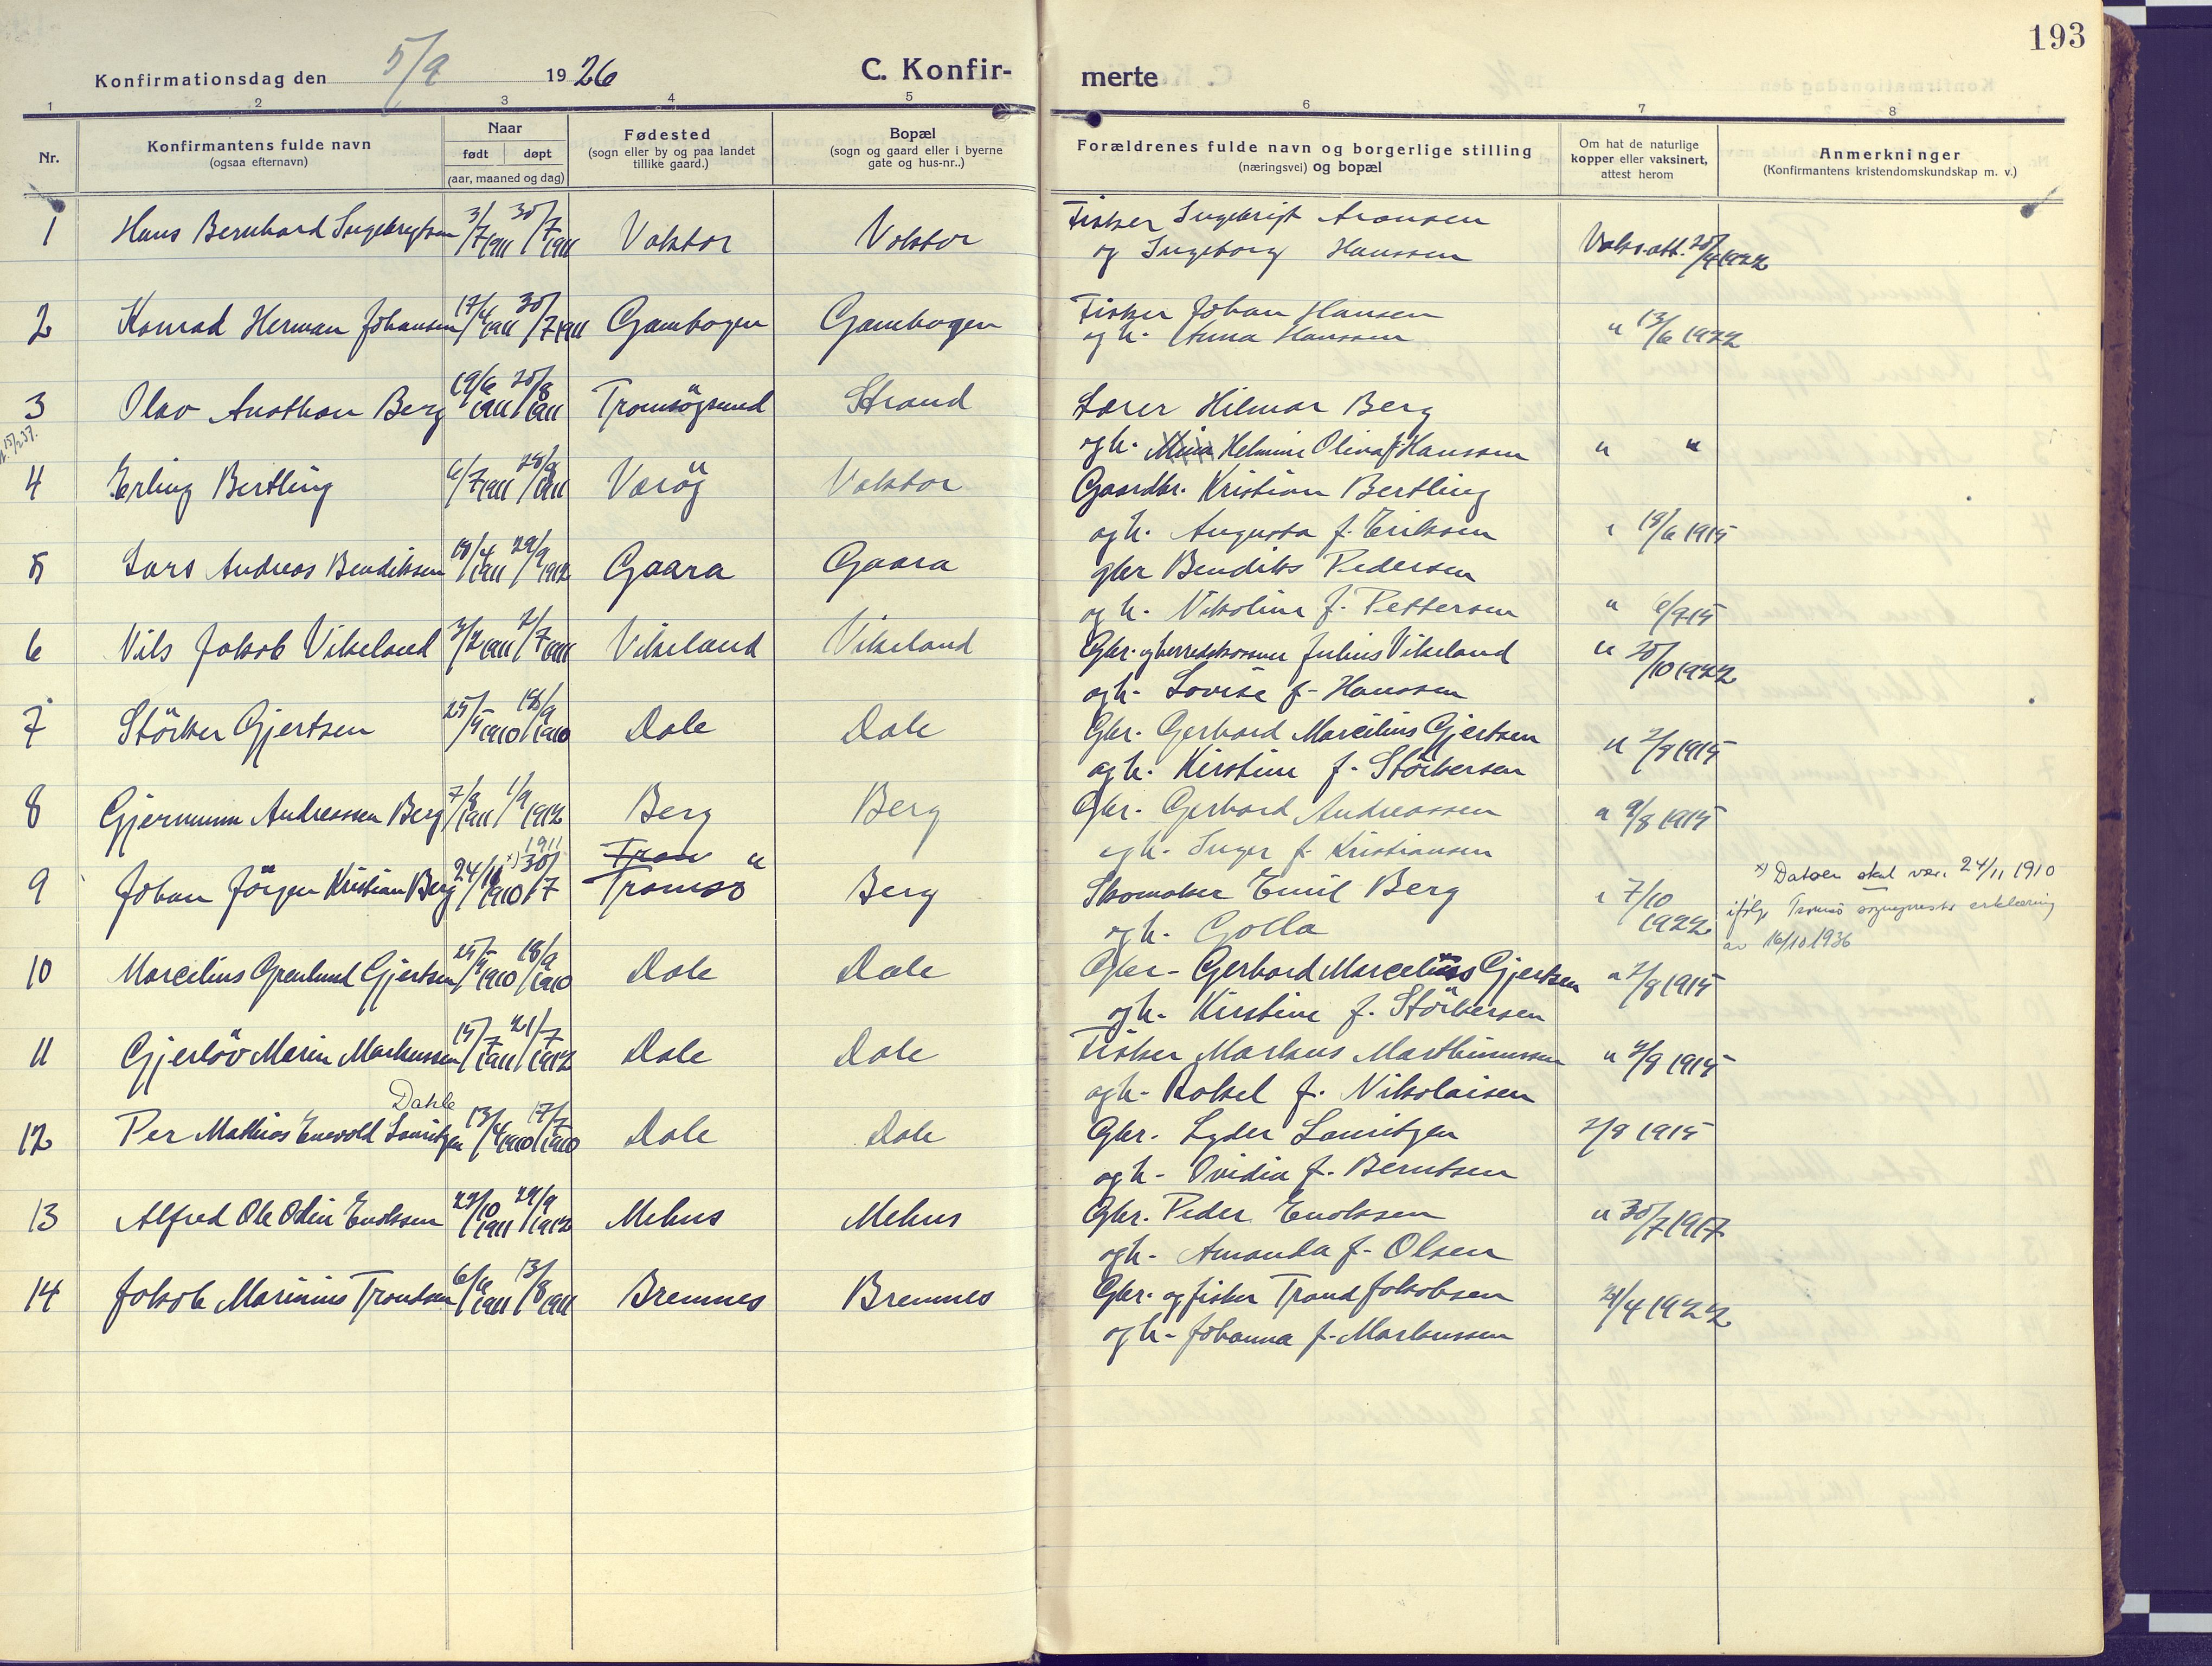 193
Konfirmationsdag den 5/9 1926 C. Konfir- merte
1 2 3 4 5 6 7 8
Nr.
Konfirmantens fulde navn
(ogsaa efternavn)
Naar
født døpt
(aar, maaned og dag)
Fødested
(sogn eller by og paa landet
tillike gaard.)
Bopæl
(sogn og gaard eller i byerne
gate og hus-nr..)
Forældrenes fulde navn og borgerlige stilling
(næringsvei) og bopæl
Om hat de naturlige
kopper eller vaksinert,
attest herom
Anmerkninger
(Konfirmantens kristendomskundskap m. v.)
1 Hans Bernhard Ingebrigtsen 3/7 1911 30/7 1911 Vaktor Vaktor Fisker Ingebrigt Aronsen
og Ingeborg Hanssen Vaks.att. 20/4 1922
2 Konrad Herman Johansen 17/4 1911 30/7 1911 Gambogen Gambogen Fisker Johan Hansen
og h. Anna Hanssen " 13/6 1922
3 Olav Anathon Berg 19/6 1911 20/8 1911 Tromsögsund Strand Lærer Hilmar Berg
og h. Helmine Oliva f. Hanssen " "
4 Erling Bertling 6/7 1911 Varög Vaktor Gaardbr. Kristian Bertling
og h. Augusta f. Eriksen 19/6 1915
5 Lars Andreas Bendiksen 18/4 1911 29/9 1912 Gaara Gaara gbr Bendiks Pedersen
og h. Nikoline f. Pettersen "
6 Nils Jakob Vikeland 3/2 1911 2/7 1911 Vikeland Vikeland Gbr. og herredskasserer Julius Vikeland
og h. Lovise f. Hanssen " 20/10 1922
7 Störker Gjertsen 25/5 1910 18/9 1910 Dale Dale Gbr. Gerhard Marcilius Gjertsen
og h. Kirstine f. Störkersen " 2/8 1915
8 Gjermunn Andreassen Berg 7/8 1911 1/9 1912 Berg Berg Gbr. Gerhard Andreassen
og h. Inger f. Kristiansen " 9/8 1915
9 Johan Jörgen Kristian Berg 24/11 1910 x) 30/7 1911 Tromsö " Berg Skomaker Emil Berg
og h. Golla 7/10
1922
x) Datoen skal være 24/11 1910
ifølge Tromsö sogneprests erklæring
av 16/10 1936
10 Marcelius Grønlund Gjertsen 25/5 1910 18/9 1910 Dale Dale Gbr. Gerhard Marcelius Gjertsen
og h. Kirstine f. Störkersen " 2/8 1915
11 Gjerlöv Marin Markussen 15/7 1911 21/7 1912 Dale Dale Fisker Markus Marthinussen
og h. Rakel f. Nikolaisen " 2/8 1915
Dahle
12 Per Mathias Enevold Lauritzen 13/4 1910 17/7 1910 Dale Dale Gbr. Lyder Lauritzen
og h. Ovidia f. Berntsen 2/8 1915
13 Alfred Ole Odin Enoksen 29/10 1911 29/9 1912 Mehus Mehus Gbr. Peder Enoksen
og h. Amanda f. Olsen " 30/7 1917
14 Jakob Marinius Trondsen 6/6 1911 13/8 1911 Bremnes Bremnes Gbr. og fisker Trond Jakobsen
og h. Johanna f. Markussen 21/4 1922